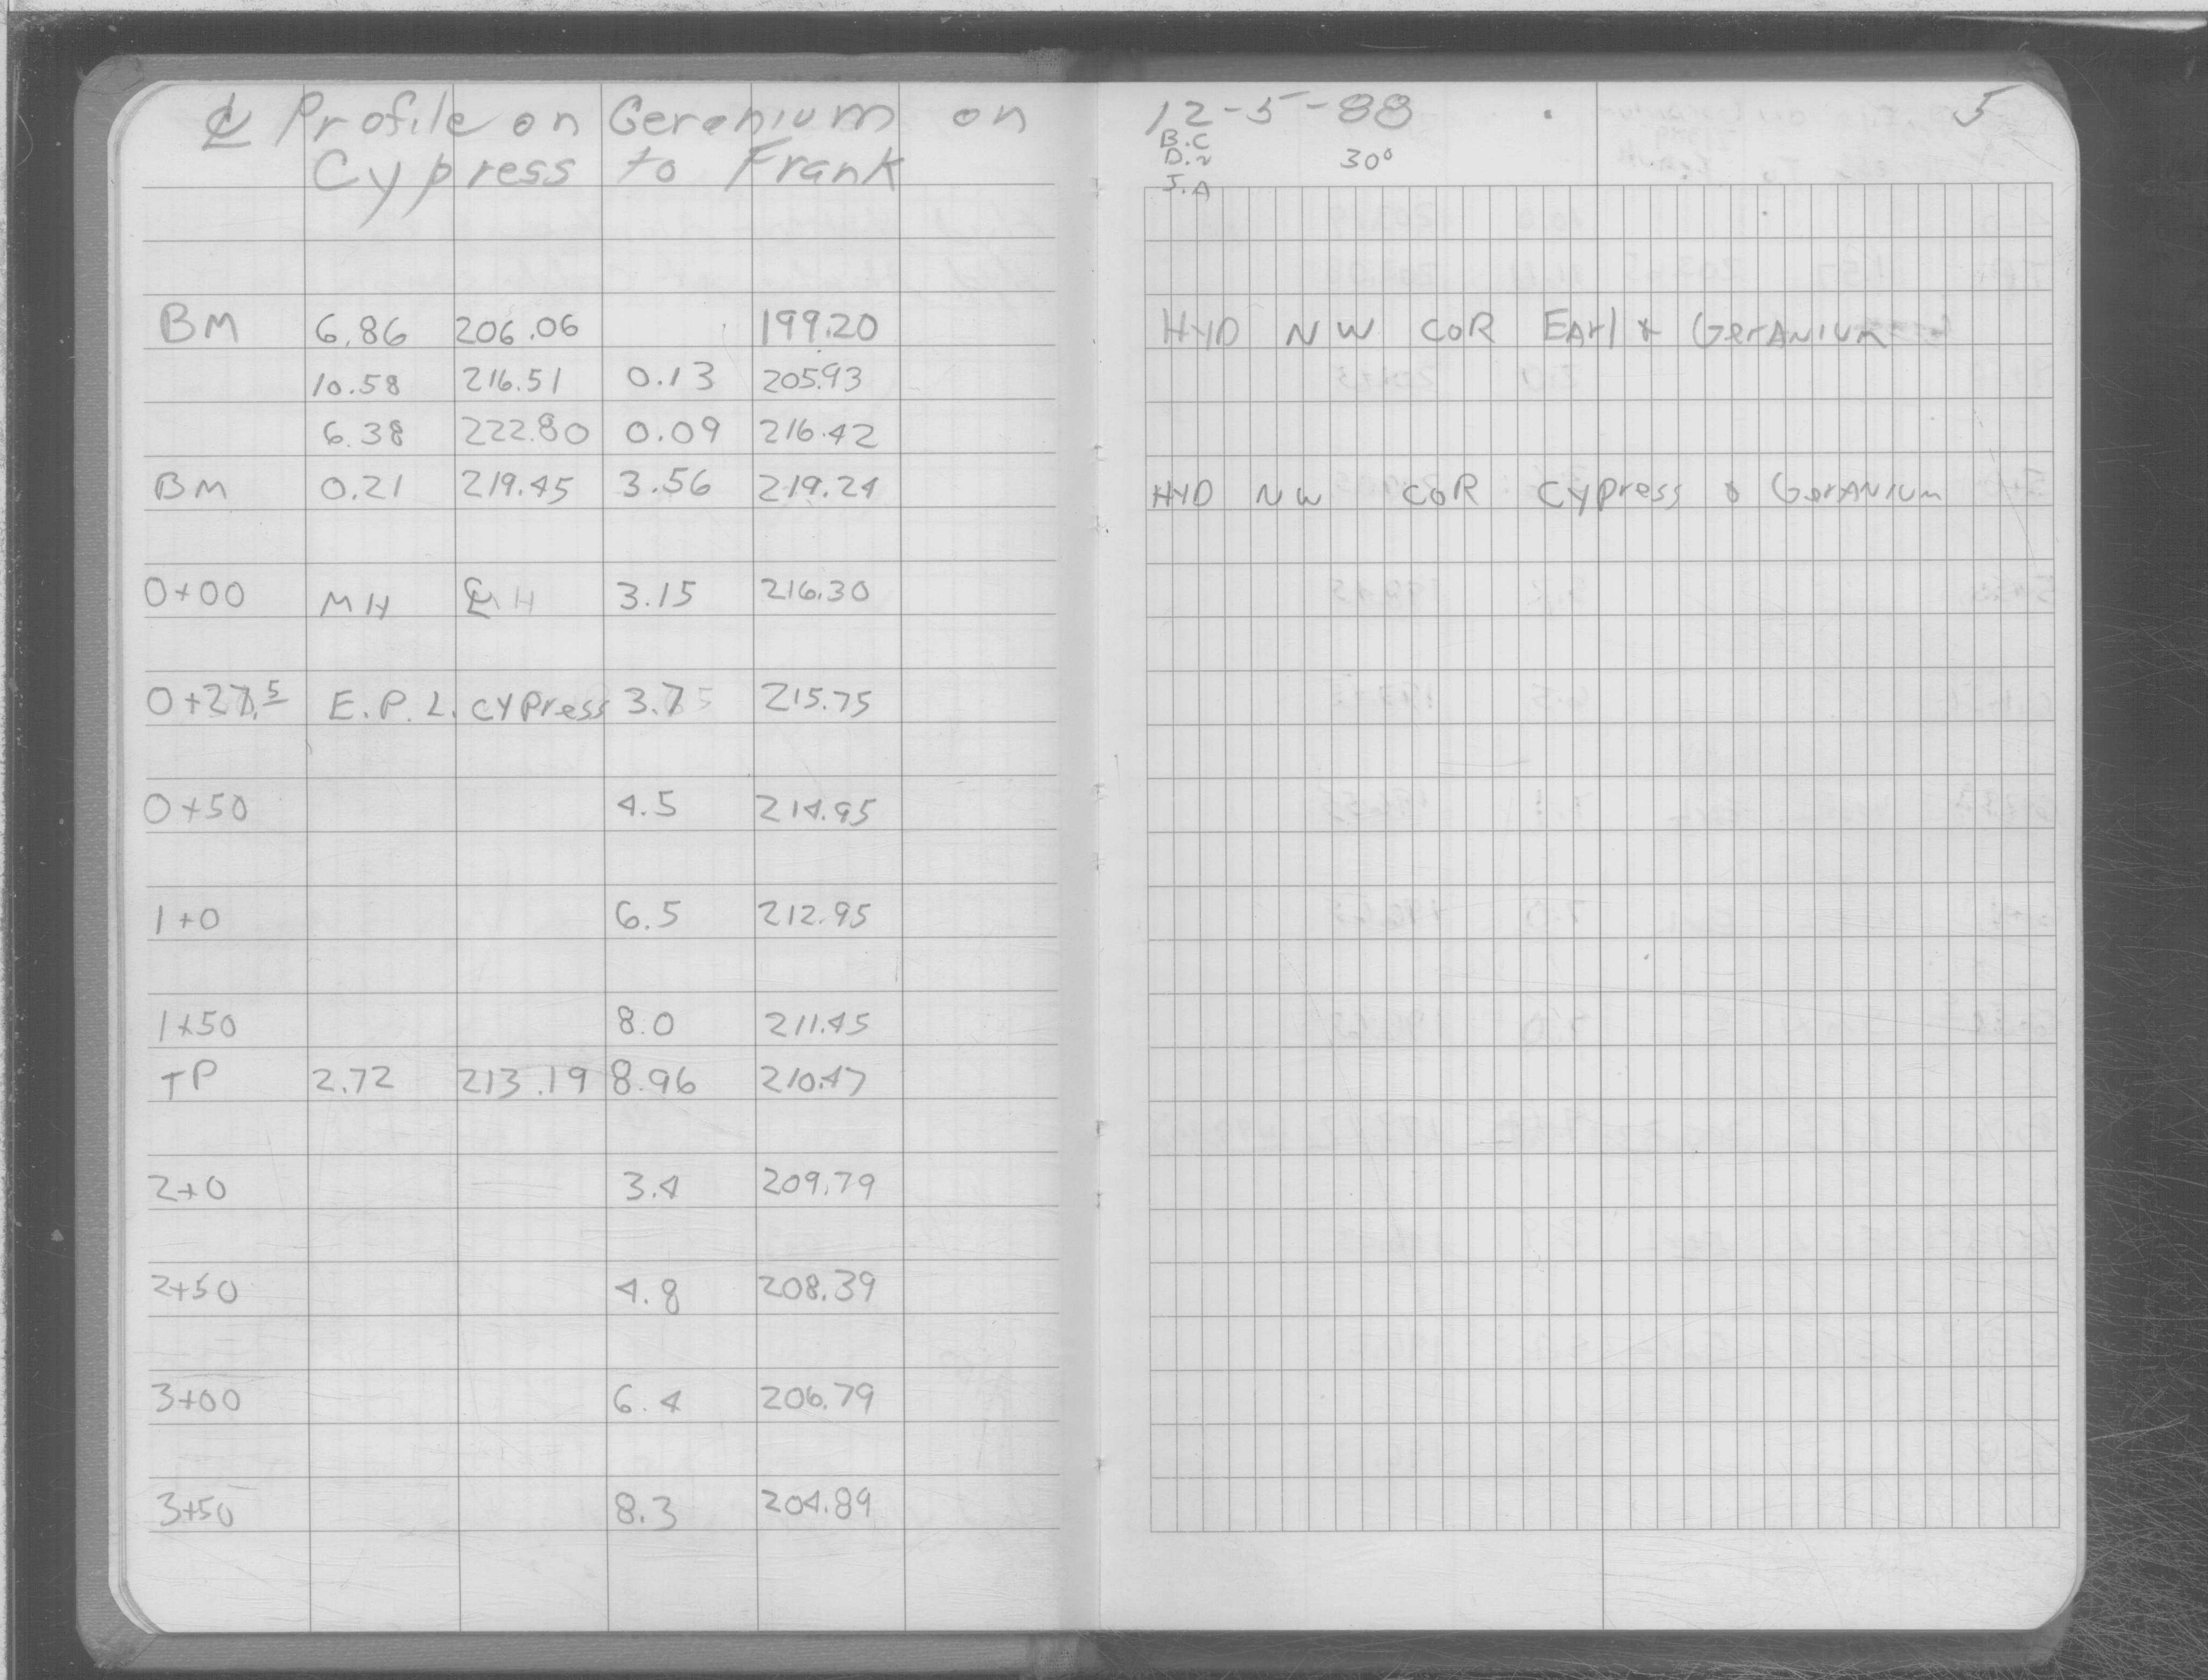 ℄ Profile on Geranium on
Cypress to Frank
BM 6.86 206.06 199.20
10.58 216.51 0.13 205.93
6.38 222.80 0.09 216.42
BM 0.21 219.45 3.56 219.24
0+00 MH ℄ MH 3.15 216.30
0+27.5 E.P.L. Cypress 3.7 215.75
0+50 4.5 214.95
1+0 6.5 212.95
1+50 8.0 211.45
TP 2.72 213.19 8.96 210.47
2+0 3.4 209.79
2+50 4.8 208.39
3+00 6.4 206.79
3+50 8.3 204.89
12-5-88 5
B.C
D.N 30°
J.A
HYD NW COR EArl & GerANIUm
HYD NW COR Cypress & GerANIUm